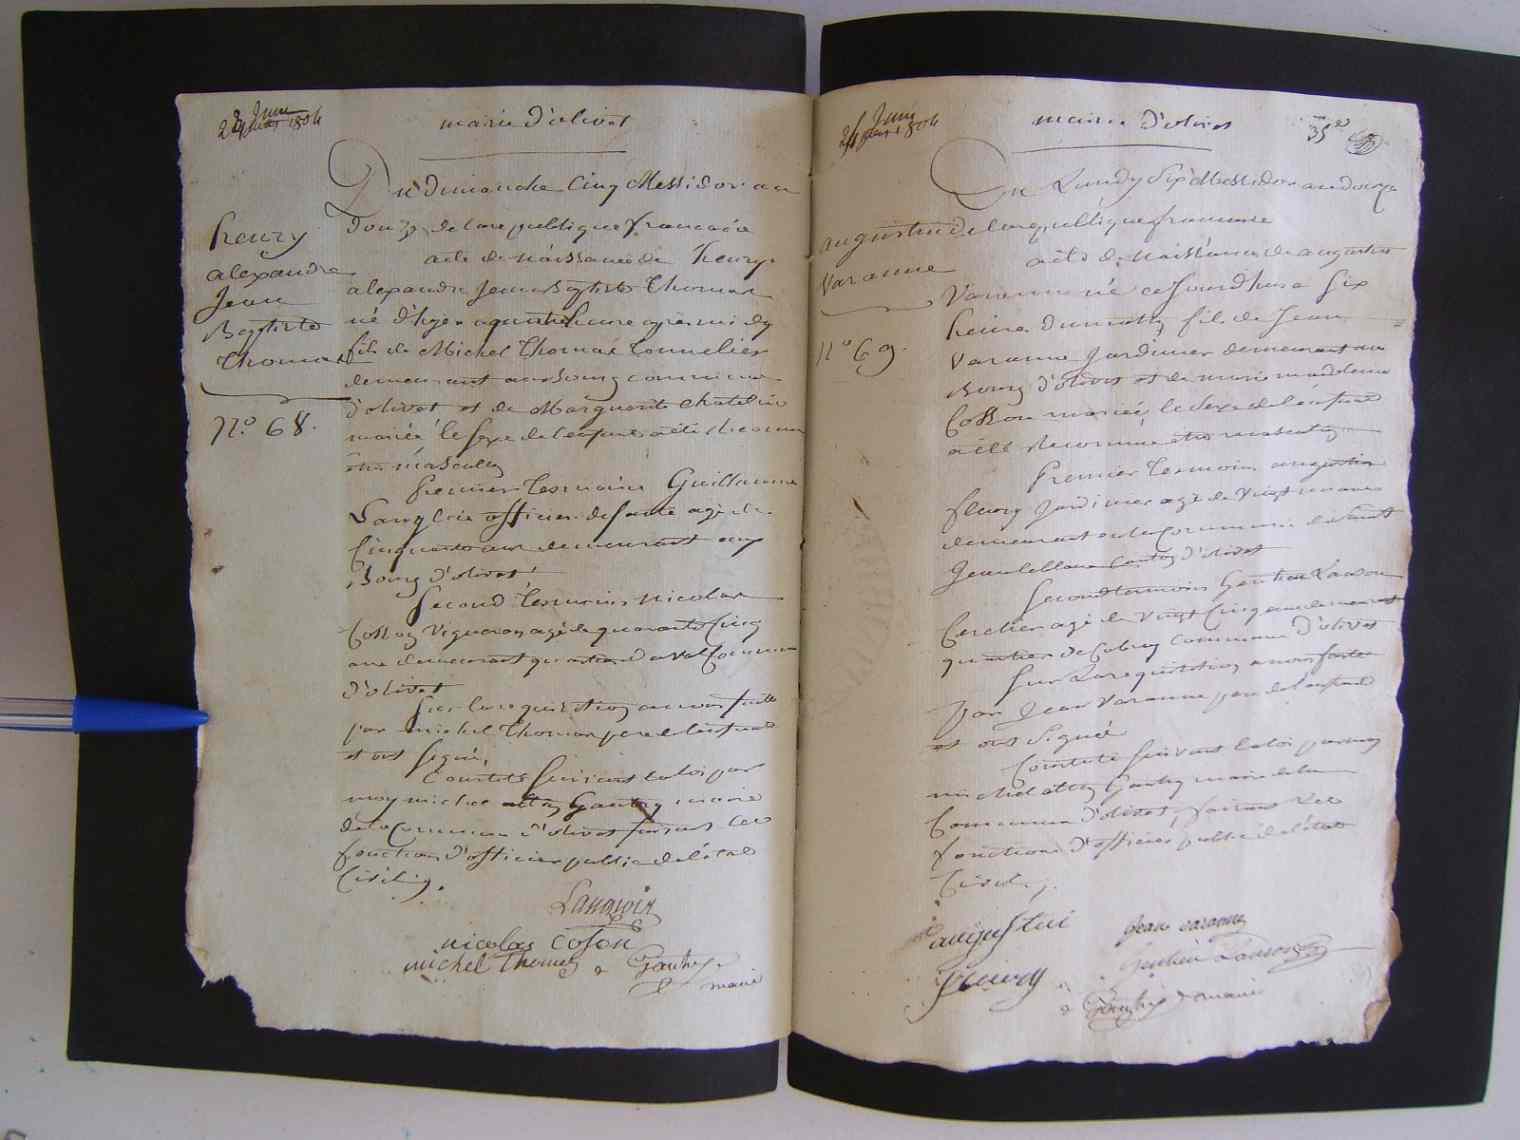 Juin 1804
mairie d'olivet
Du dimanche Cinq Messidor an
douze de la republique francaise
acte de naissance de henry
alexandre Jean Baptiste Thomas
né d'hyer a quatre heure apres midy
fils de Michel Thomas Tonnelier
demeurant au Bourg commune
d'olivet et de Marguerite Chatelin
mariée le sexe de l'enfant a été reconnu
être masculin
Premier Tesmoins Guillaume
Langlois officier de santé agé de
Cinquante ans demeurant au
Bourg d'olivet
Second Tesmoins nicolas
Cosson Vigneron agé de quarante Cinq
ans demeurant quartier d'aval Commune
d'olivet
Sur la requisition a nous faitte
par michel Thomas pere de l'enfant
et ont signé
Constaté suivant la loi par
moy michel Gautry maire
de la Commune d'olivet faisant les
fonctions d'officier public de l'état
Civil
henry
alexandre
Jean
Baptiste
Thomas
N.o 68.
nicolas coson
michel Thomas Gautry
maire
Juin 1804
mairie d'olivet
35
Du Lundy Six Messidor an douze
de la republique francaise
acte de naissance de augustin
Varanne né ce Jourdhui a Six
heures du matin fils de Jean
Varanne Jardinier demeurant au
Bourg d'olivet et de marie madelaine
Cosson mariée le sexe de l'enfant
a été reconnu être masculin
Premier Tesmoins augustin
fleury Jardinier agé de Vingt ans
demeurant de la Commune de Saint
Jean le blanc d'olivet
Second tesmoins Gentien Lanson
Cerclier agé de Vingt Cinq ans demeurant
quartier de Commune d'olivet
Sur La requisition a nous faitte
Par Jean Varanne pere de l'enfant
et ont Signé
Constaté Suivant la loi par moy
michel Gautry maire de la
Commune d'olivet, faisant Les
fonctions d'officier public de l'état
Civil
augustin
Varanne
N.o 69.
augustin Jean varanne
fleury Gentien Lanson
Gautry maire